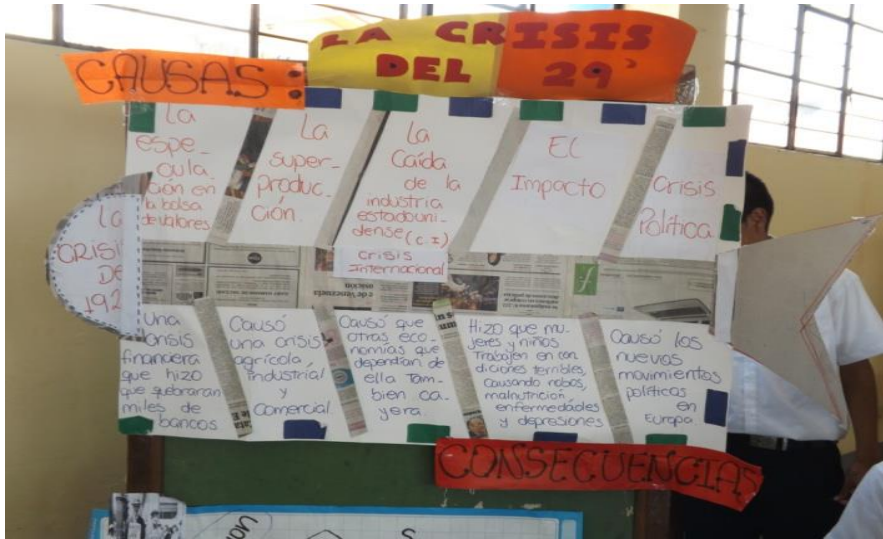 LA CRISIS
DEL 29'
CAUSAS:
La
espe-
cula-
ción en
la bolsa
de valores
La
super-
produc-
ción.
La
Caída
de la
industria
estadouni-
dense (C.I)
crisis
Internacional
El
Impacto
Crisis
Política
La
CRISI
DE
192
e de Venezuela
Una
crisis
financiera
que hizo
que quebraran
miles de
bancos
Causó
una crisis
agrícola
industrial
y
Comercial.
Causó que
otras eco-
nomías que
dependían de
ella Tam-
bien ca-
yera.
Hizo que mu-
jeres y niños
Trabajen en con
diciones terribles,
causando robos,
malnutrición,
enfermedades
y depresiones
Causó los
nuevos
movimientos
políticos
en
Europa
CONSECUENCIAS